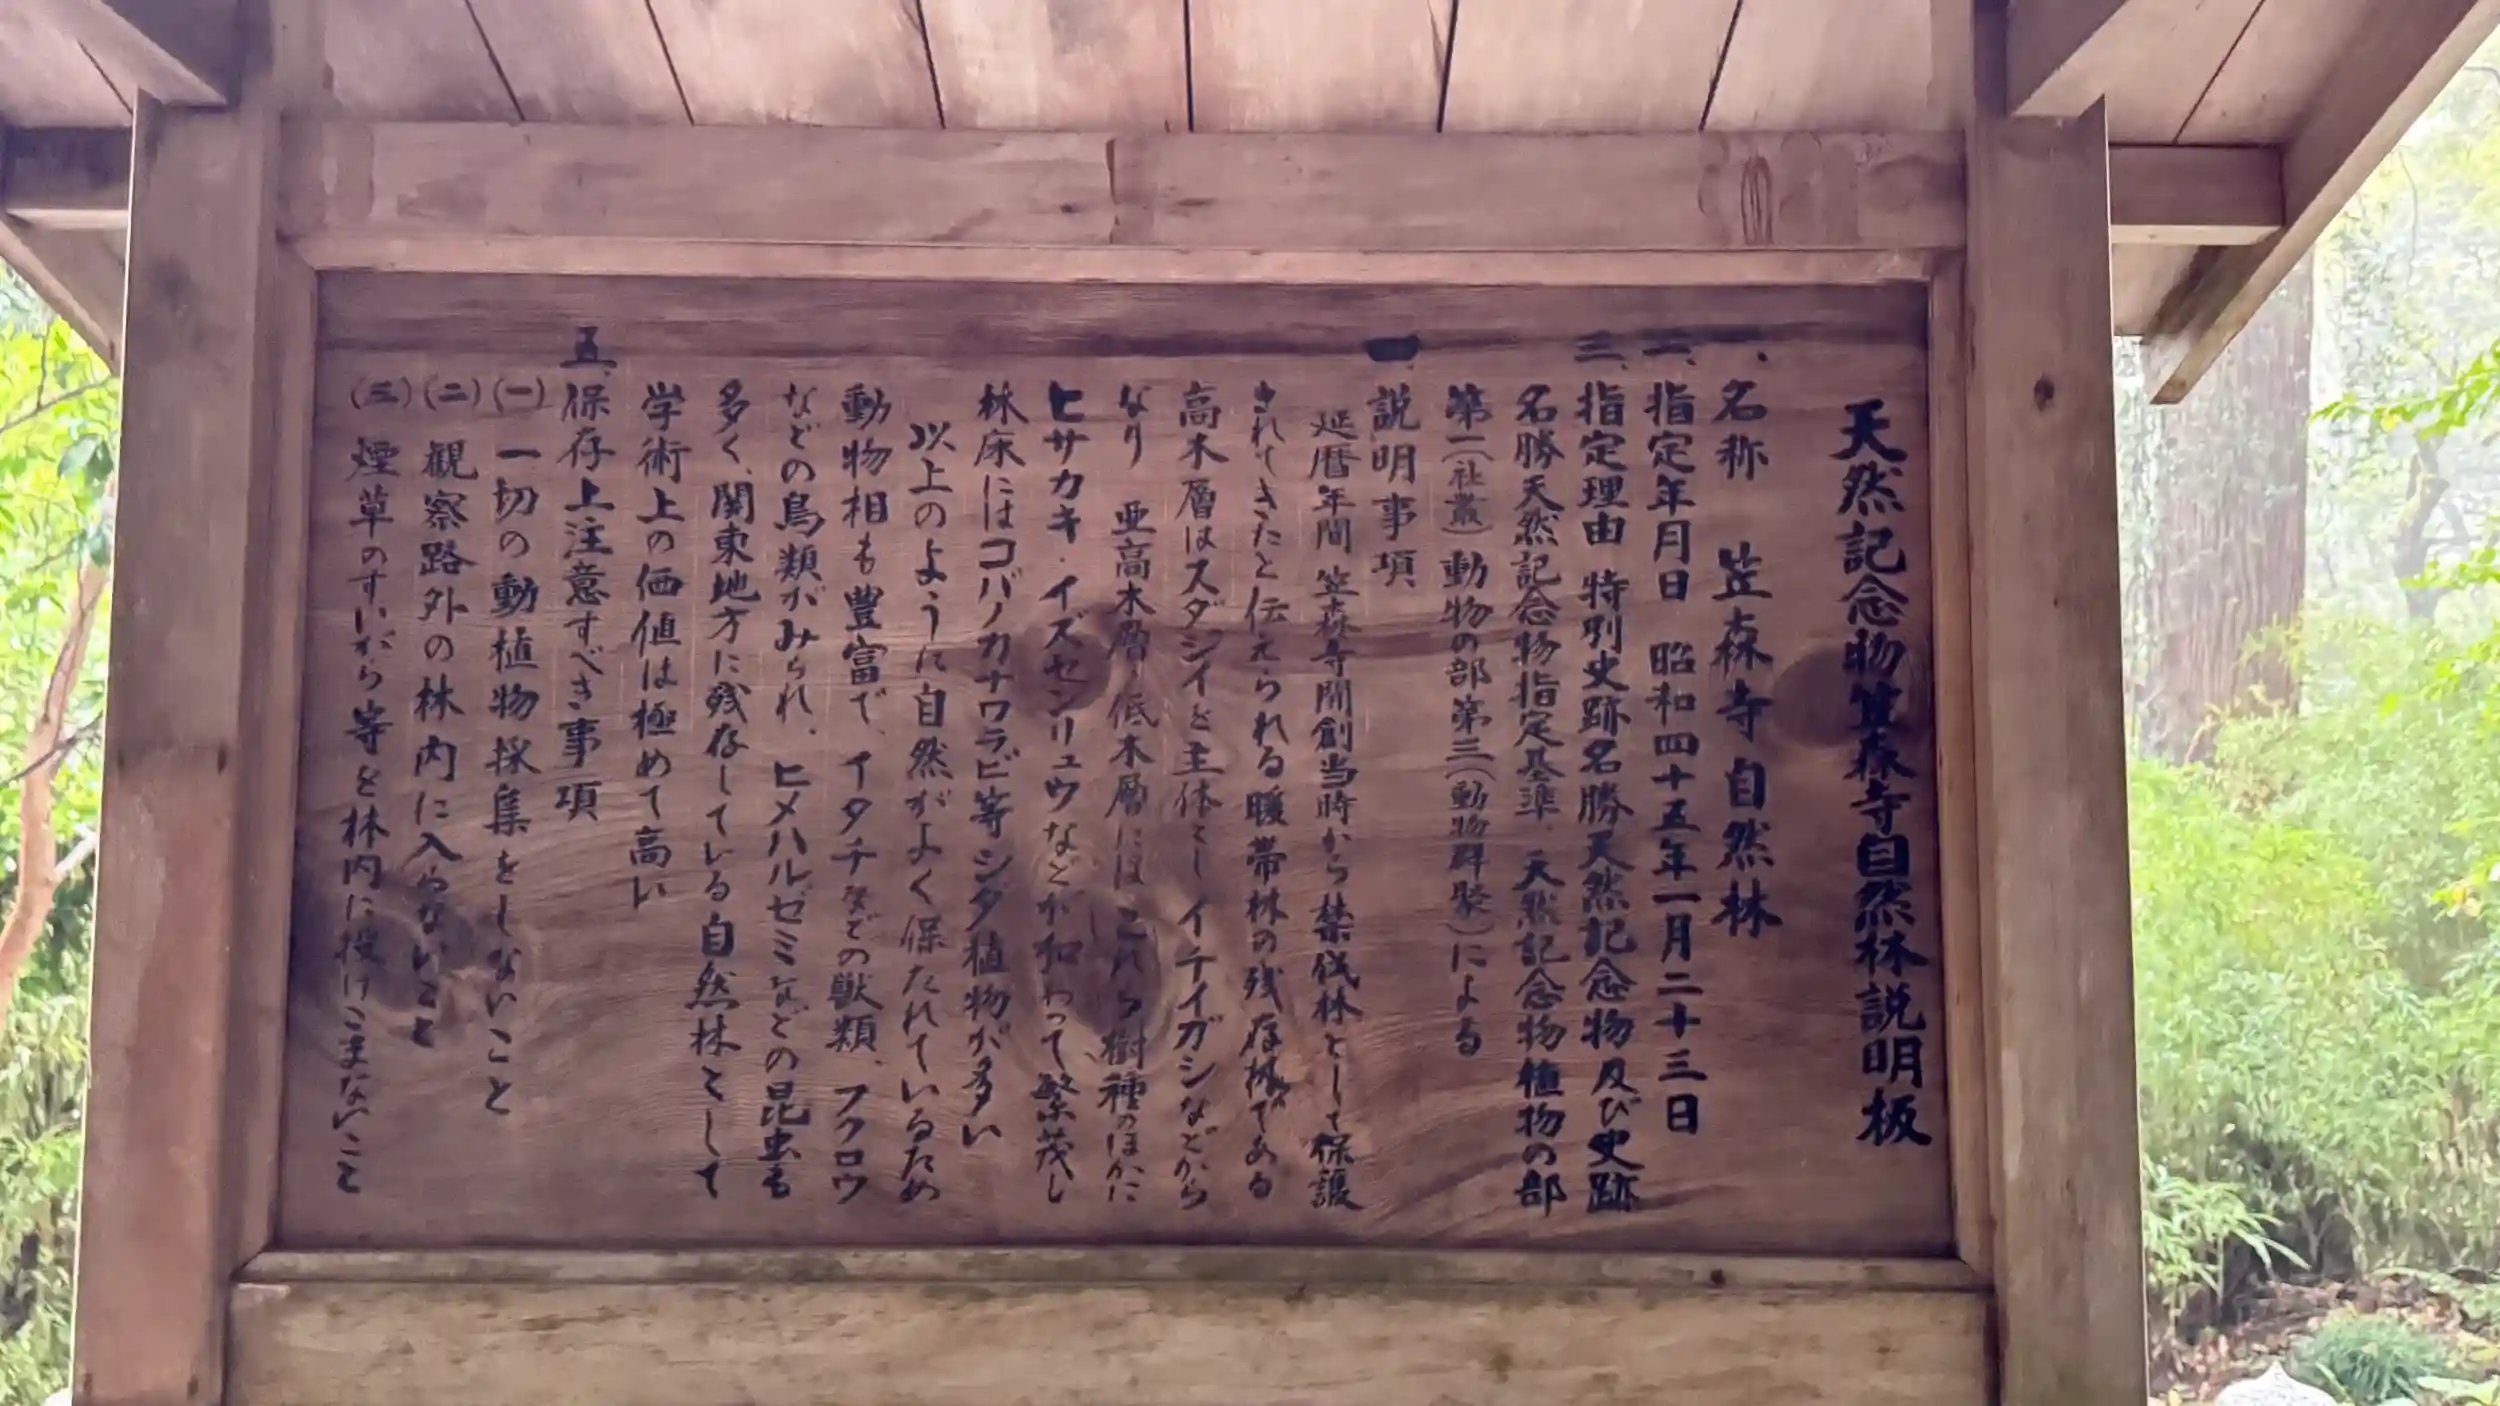 天然記念物笠森寺自然林説明板
、名称 笠森寺自然林
二、指定年月日 昭和四十五年一月二十三日
三、指定理由 特別史跡名勝天然記念物及び史跡
名勝天然記念物指定基準、天然記念物植物の部
第二(社叢)動物の部第三(動物群聚)による
説明事項
延暦年間 笠森寺開創当時から禁伐林として保護
されてきたと伝えられる暖帯林の残存林である
高木層はスダジイを主体とし イチイガシなどから
なり 亜高木層・低木層にはこれら樹種のほかに
ヒサカキ・イズセンリョウなどが加わって繁茂し
林床にはコバノカナワラビ等シダ植物が多い
以上のように自然がよく保たれているため
動物相も豊富で、イタチなどの獣類、フクロウ
などの鳥類がみられ、ヒメハルゼミなどの昆虫も
多く、関東地方に残存している自然林として
学術上の価値は極めて高い
五、保存上注意すべき事項
(一)一切の動植物採集をしないこと
(二)観察路外の林内に入らないこと
(三)煙草のすいがら等を林内に投げこまないこと